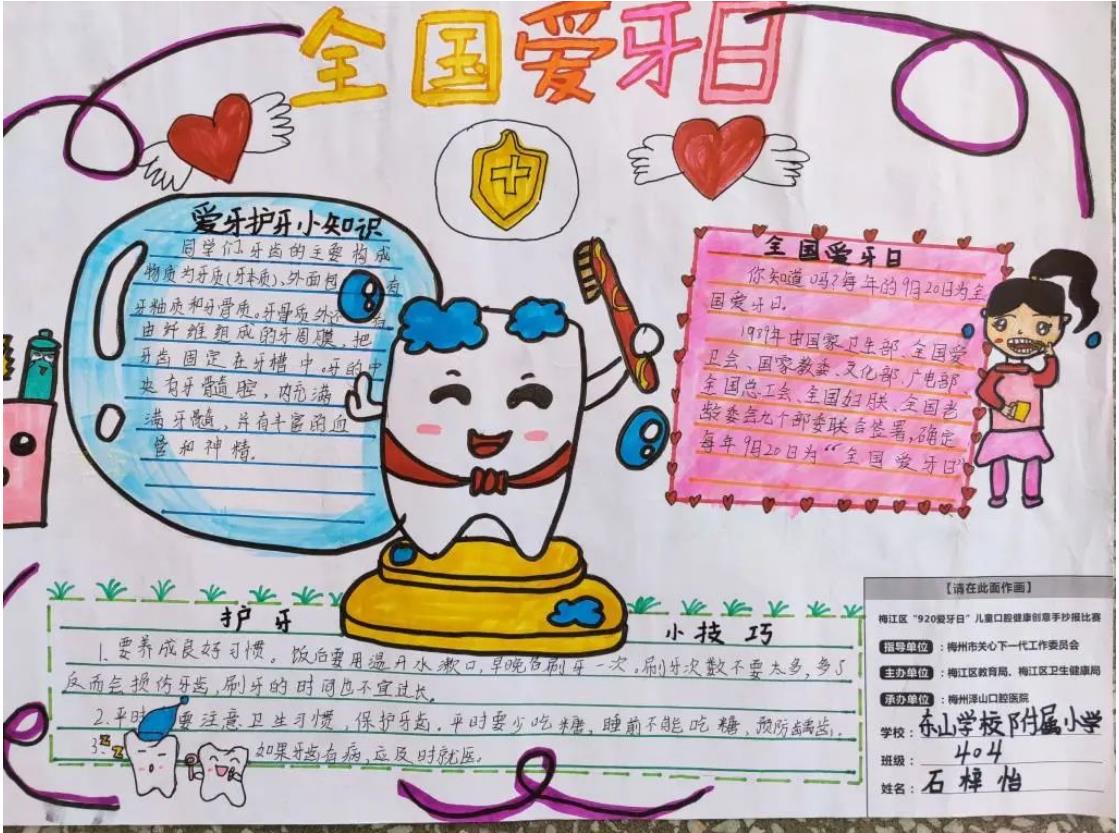 全国爱牙日
爱牙护牙小知识
同学们,牙齿的主要构成
物质为牙质(牙本质),外面包有
牙釉质和牙骨质。牙骨质外
由纤维组成的牙周膜,把
牙齿固定在牙槽中。牙的中
央有牙髓腔,内充满
满牙髓,并有丰富的血
管和神精。
全国爱牙日
你知道吗?每年的9月20日为全
国爱牙日。
1989年由国家卫生部、全国爱
卫会、国家教委、文化部、广电部
全国总工会、全国妇联、全国老
龄委会九个部委联合签署,确定
每年9月20日为“全国爱牙日”
护牙
小技巧
1.要养成良好习惯。饭后要用温开水漱口,早晚各刷牙一次,刷牙次数不要太多,多了
反而会损伤牙齿,刷牙的时间也不宜过长。
2.平时要注意卫生习惯,保护牙齿。平时要少吃糖,睡前不能吃糖,预防龋齿.
3.如果牙齿有病,应及时就医。
zzz
【请在此面作画】
梅江区“920爱牙日”儿童口腔健康创意手抄报比赛
指导单位:梅州市关心下一代工作委员会
主办单位:梅江区教育局、梅江区卫生健康局
承办单位:梅州泽山口腔医院
学校:东山学校附属小学
班级:404
姓名:石梓怡